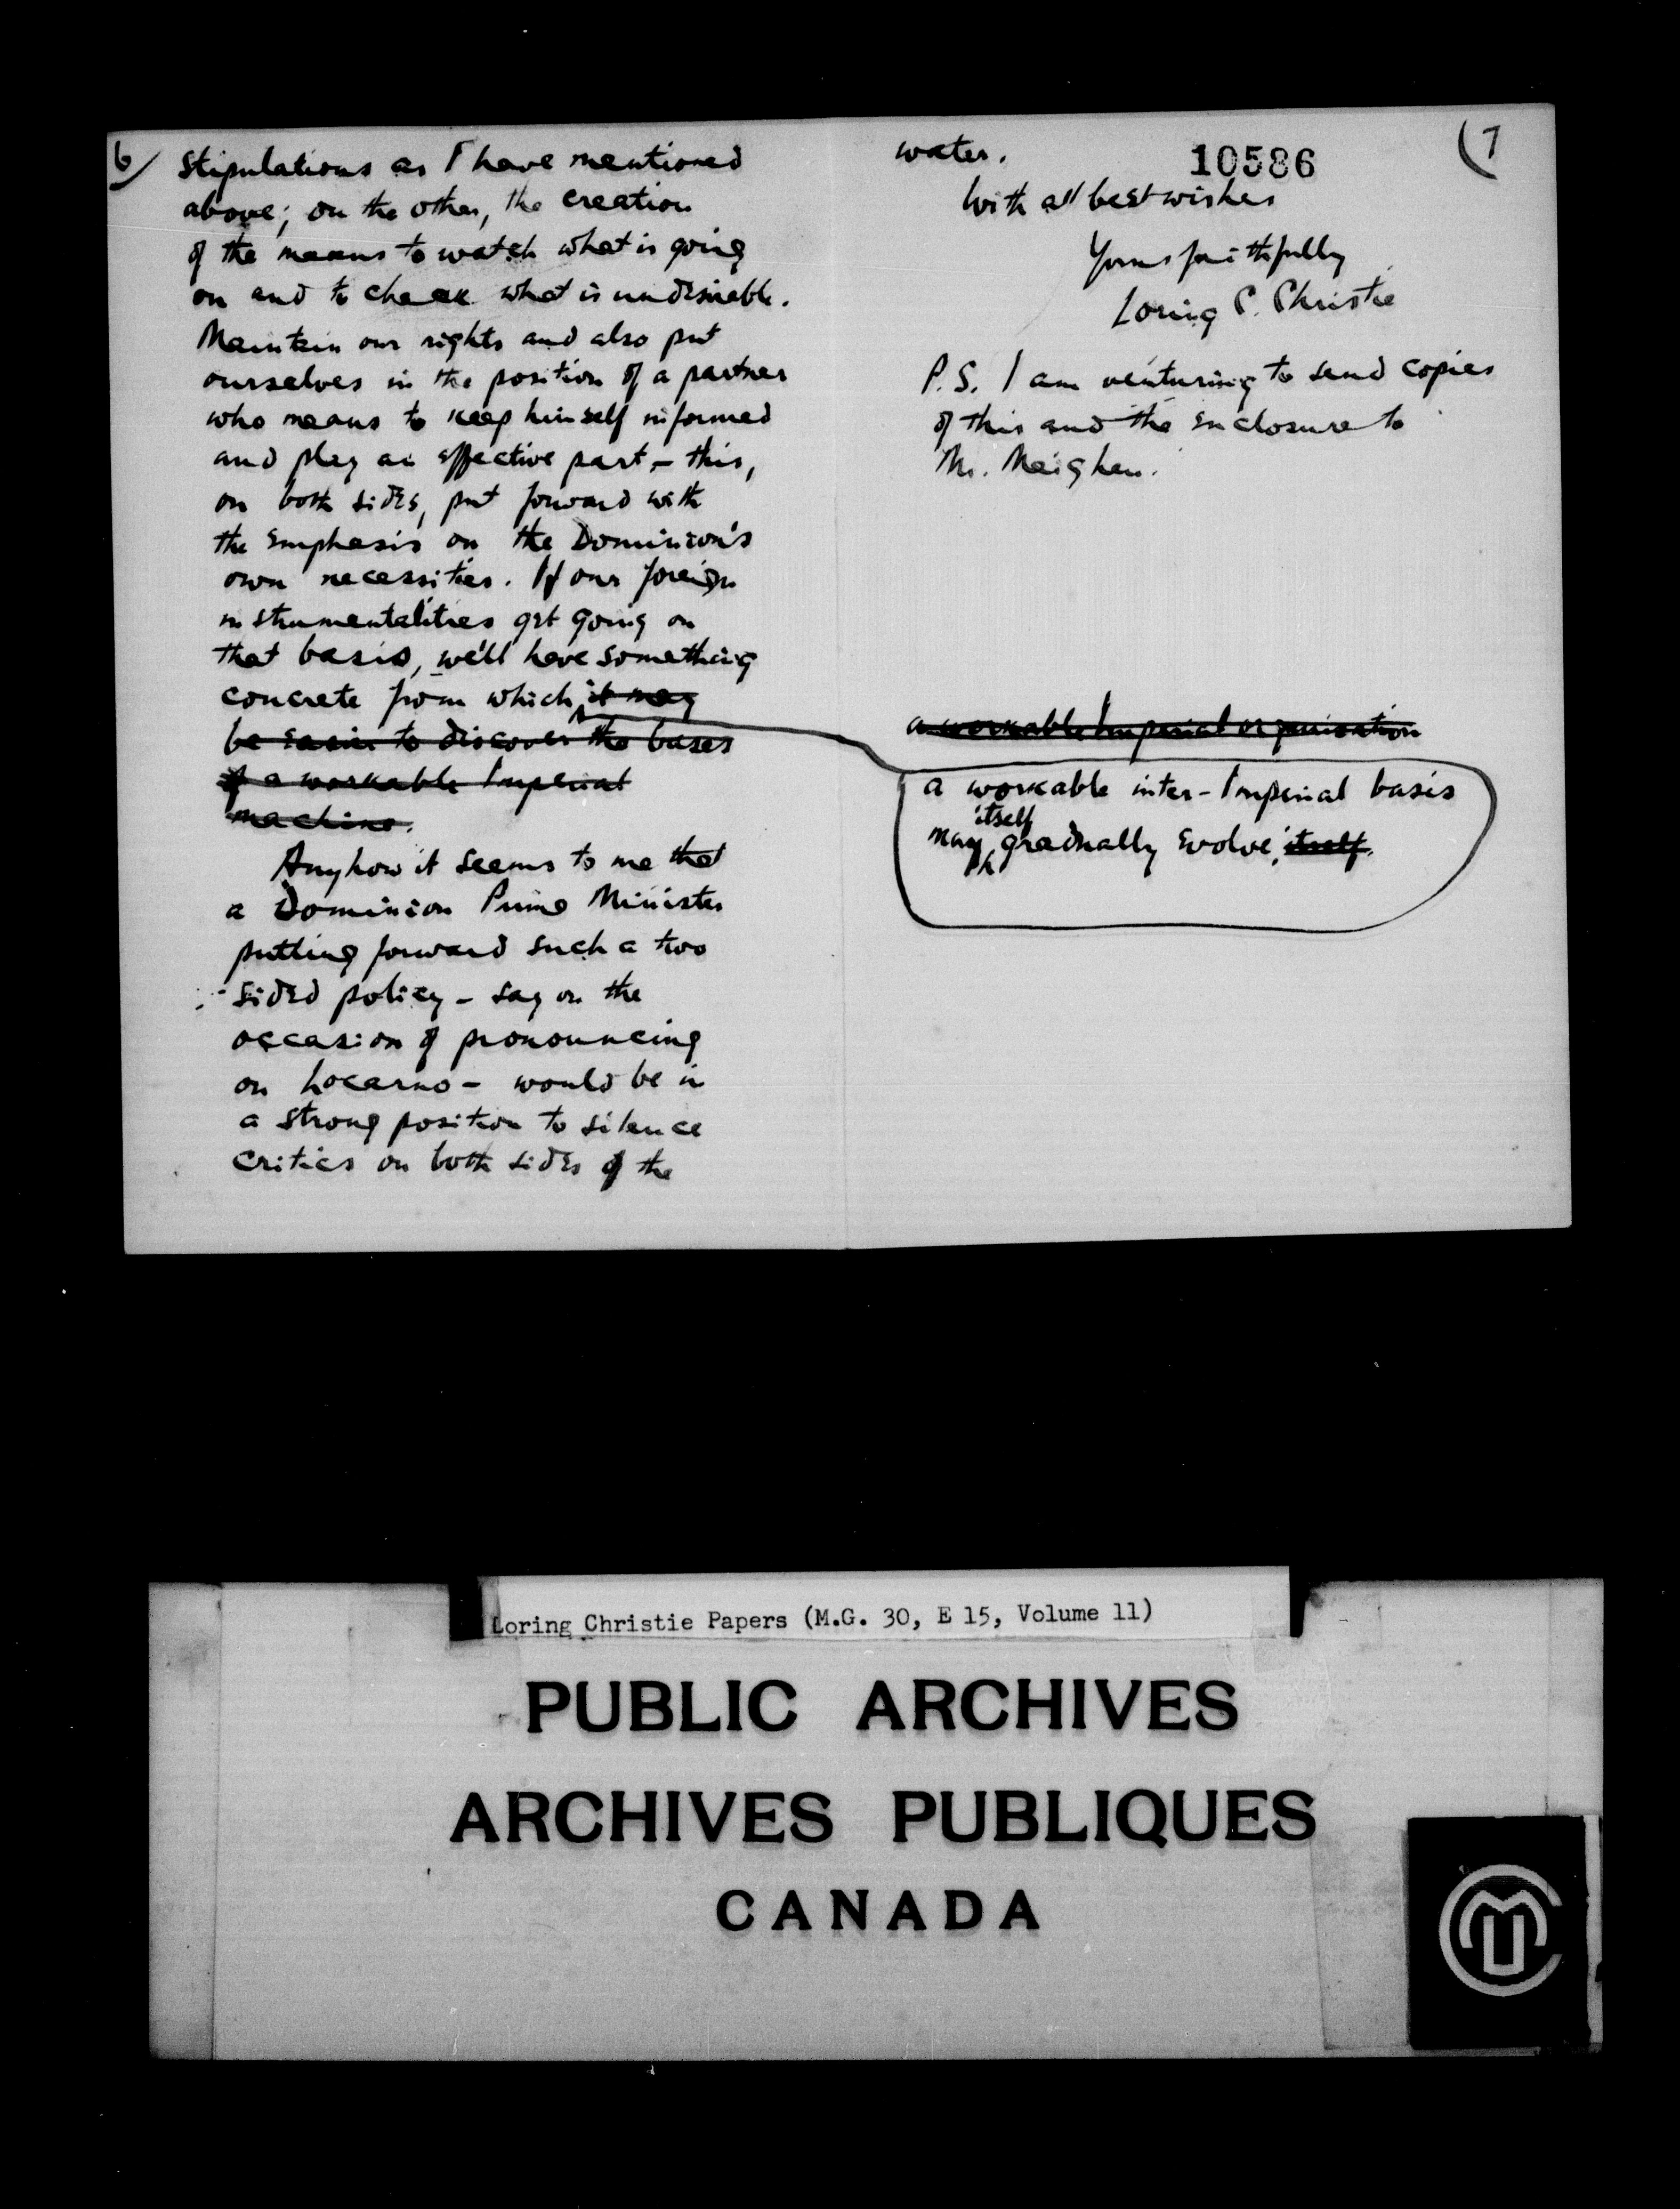 6/
Stipulations as I have mentioned
above; on the other, the creation
of the means to watch what is going
on and to check what is undesirable.
Maintain our rights and also put
ourselves in the position of a partner
who means to keep himself informed
and play an effective part, - this,
on both sides, put forward with
the emphasis on the Dominion's
own necessities. If our foreign
instrumentalities get going on
that basis, we'll have something
concrete from which it may
be easier to discover the bases
of a workable Imperial
machine.
Anyhow it seems to me that
a Dominion Prime Minister
putting forward such a two
sided policy - say on the
occasion of pronouncing
on Locarno - would be in
a strong position to silence
critics on both sides of the
(7
10586
water.
With all best wishes
Yours faithfully
Loring C. Christie
P.S. I am venturing to send copies
of this and the enclosure to
Mr. Meighen.
a workable Imperial organisation
a workable inter-Imperial basis
itself
may gradually evolve. itself.
Loring Christie Papers (M.G. 30, E 15, Volume 11)
PUBLIC ARCHIVES
ARCHIVES PUBLIQUES
CANADA